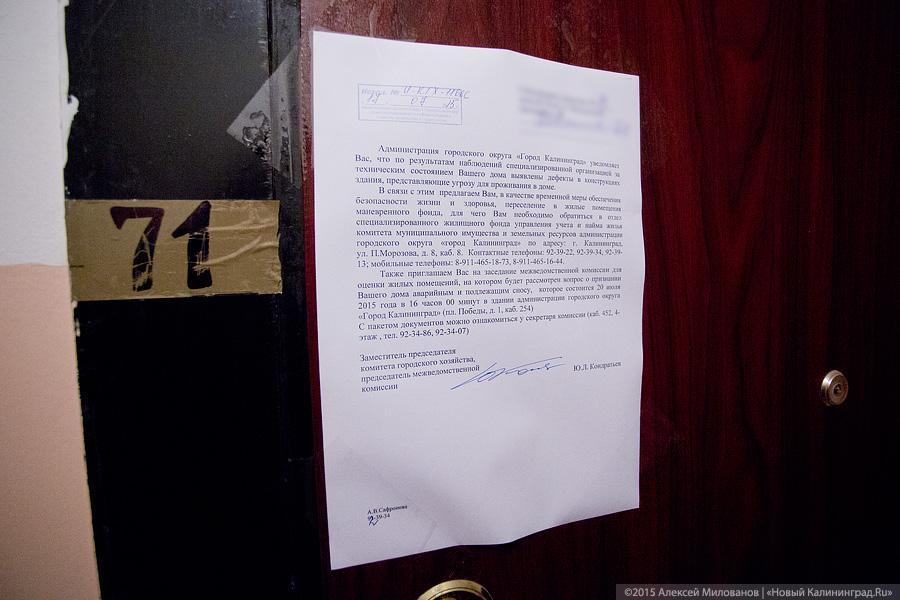 71
Администрация городского округа «Город Калининград» уведомляет
Вас, что по результатам наблюдений специализированной организацией за
техническим состоянием Вашего дома выявлены дефекты в конструкциях
здания, представляющие угрозу для проживания в доме.
В связи с этим предлагаем Вам, в качестве временной меры обеспечения
безопасности жизни и здоровья, переселение в жилые помещения
маневренного фонда, для чего Вам необходимо обратиться в отдел
специализированного жилищного фонда управления учета и найма жилья
комитета муниципального имущества и земельных ресурсов администрации
городского округа «город Калининград» по адресу: г. Калининград,
ул. П.Морозова, д. 8, каб. 8. Контактные телефоны: 92-39-22, 92-39-34, 92-39-
13; мобильные телефоны: 8-911-465-18-73, 8-911-465-16-44.
Также приглашаем Вас на заседание межведомственной комиссии для
оценки жилых помещений, на котором будет рассмотрен вопрос о признании
Вашего дома аварийным и подлежащим сносу, которое состоится 20 июля
2015 года в 16 часов 00 минут в здании администрации городского округа
«Город Калининград» (пл. Победы, д. 1, каб. 254)
С пакетом документов можно ознакомиться у секретаря комиссии (каб. 452, 4-
этаж , тел. 92-34-86, 92-34-07)
Заместитель председателя
комитета городского хозяйства,
председатель межведомственной
комиссии
Ю.Л. Кондратьев
А.В.Сафронова
92-39-34
©2015 Алексей Милованов | «Новый Калининград.Ru»